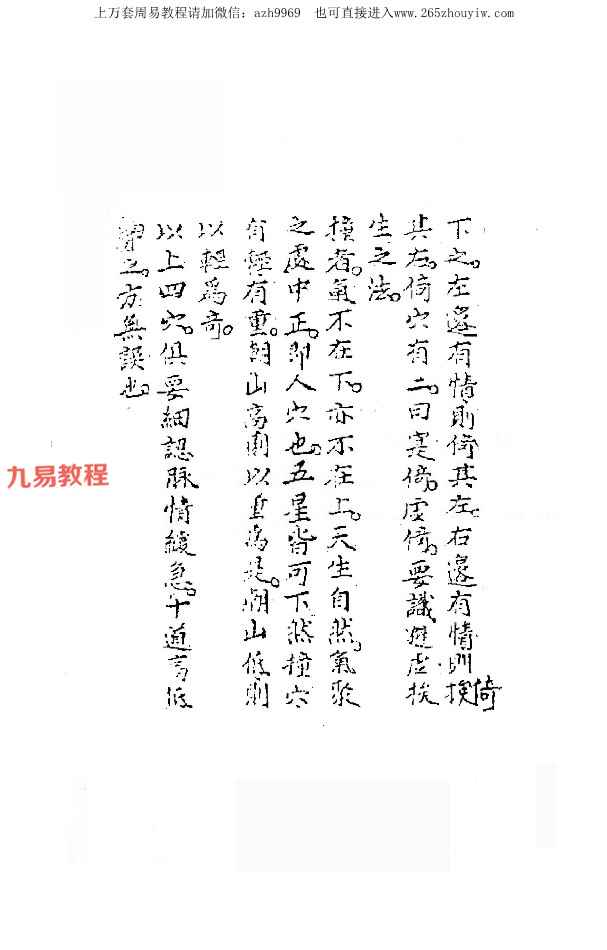 上万套周易教程请加微信：azh9969　也可直接进入www.265zhouyiw.com
下之。左邊有情則倚其左。右邊有情則挨倚
其右。倚穴有二。曰寔倚。虛倚。要識避虛挨
生之法。
撞者。氣不在下。亦不在上。天生自然。氣聚
之處中正。即人穴也。五星皆可下然撞穴
有輕有重。朝山高則以重為是。朝山低則
以輕為奇。
以上四穴。俱要細認脉情緩急。十道高低
之。方無誤也。
九易教程